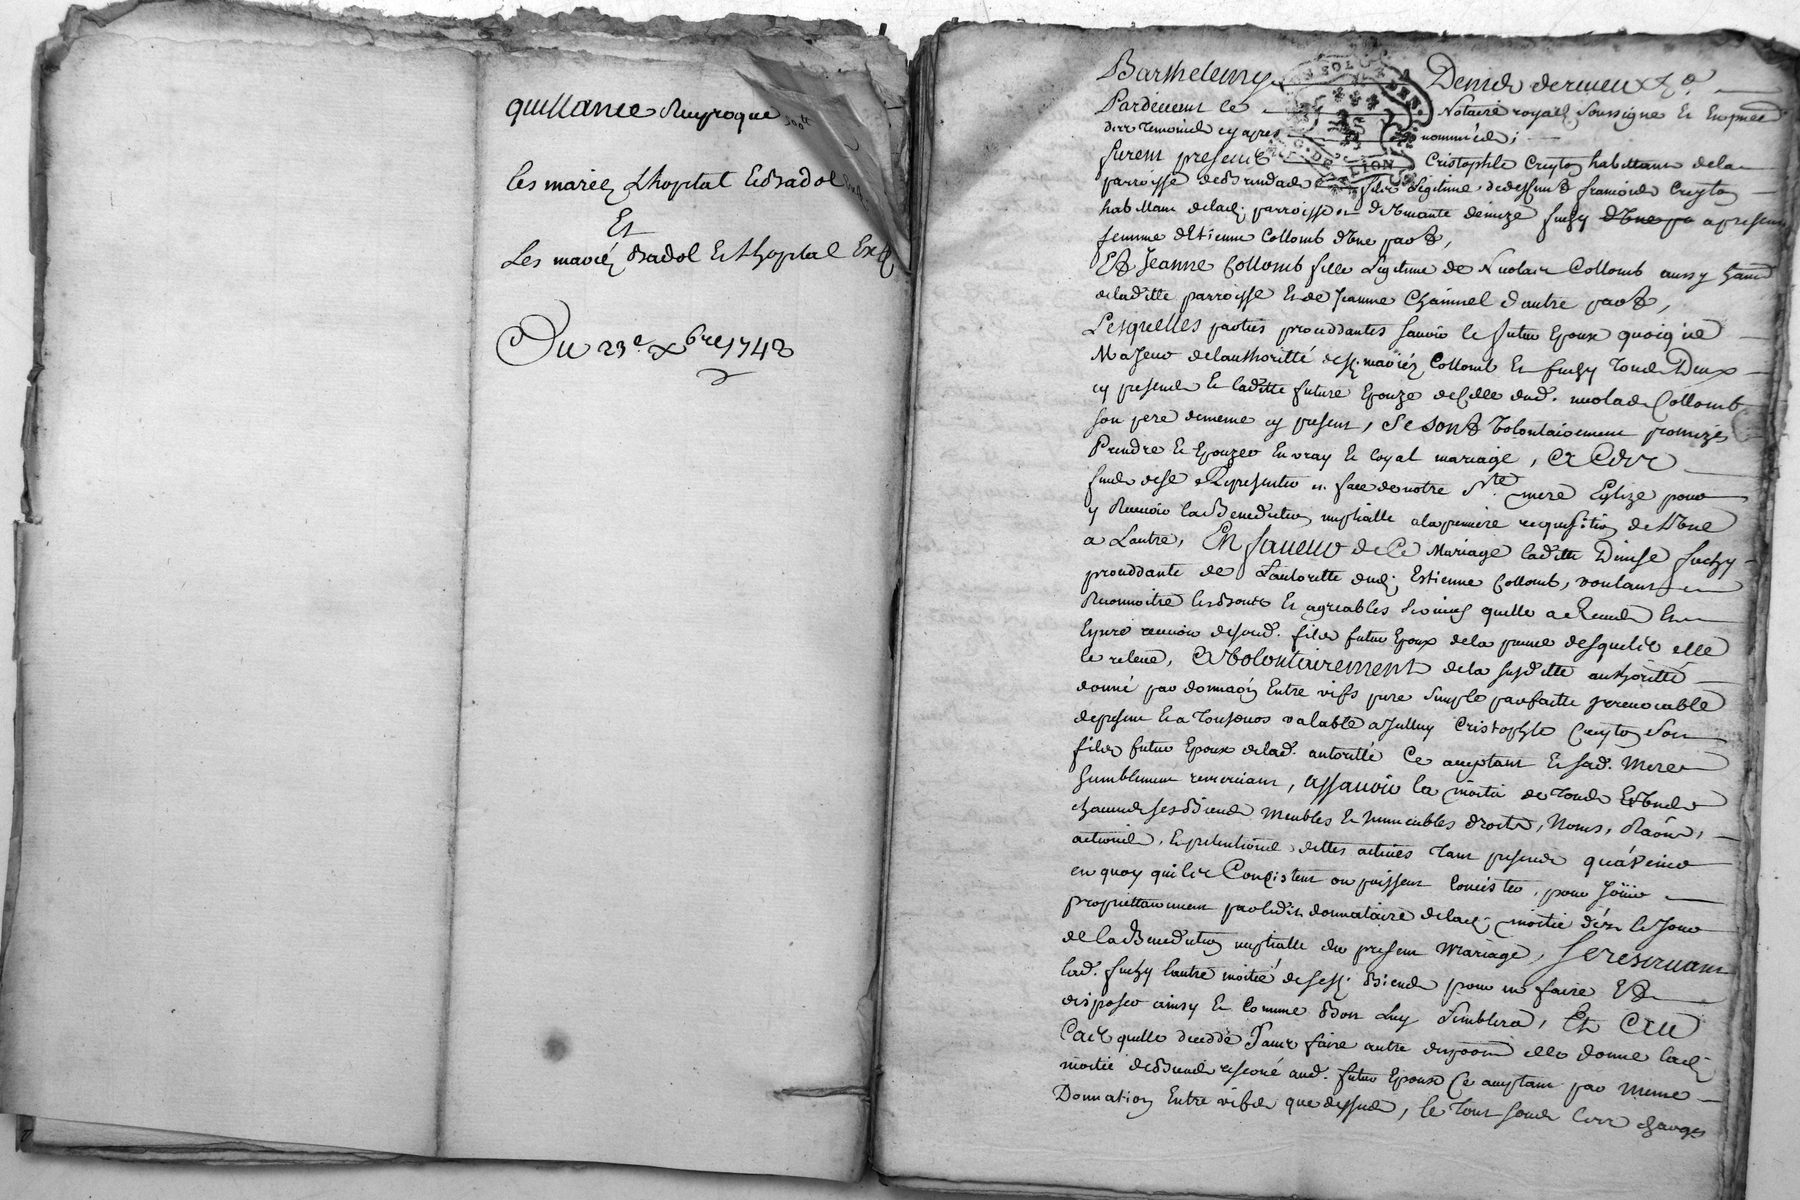 quittance Reciproque
300lt
les mariez Lhopital et Badol
Et
Les mariez Badol et Lhopital
Du 23e xbre 1748
Barthelemy Denis
Pardevant le Notaire royal soussigné et en presence
des temoins cy apres nommés ;
furent presents Cristophle Creyton habittant de la
parroisse de fils legitime de deffunt françois Creyton
habittant de lad. parroisse et de vivante denize fuchy d'une pa a present
femme d'Etienne Collomb d'une part,
Et Jeanne Collomb fille Legitime de Nicolas Collomb aussy habitt
de laditte parroisse et de Jeanne Chainnel d'autre part,
Lesquelles parties proceddantes savoir le futur Epoux quoique
Majeur de lauthoritté desd. mariéz Collomb et fuchy tous Deux
cy presents et laditte future Epouze de celle dud. nicolas Collomb
son pere de meme cy present, se sont volontairement promis se
Prendre et Epouzer en vray et loyal mariage, et
de se Representer en face de notre Ste mere Eglize pour
y Recevoir la Benediction nuptialle a la premiere requisition de L'une
a Lautre, En faveur de Ce Mariage laditte Denise fuchy
proceddante de Lautoritté dud. Estienne Collomb, voulant
Reconnoitre les bons et agreables services quelle a Recus et
Espere recevoir de sond. fils futur Epoux de la preuve desquels elle
le releve, a volontairement de la susditte authoritté
donné par donnaôn Entre vifs pure simple parfaitte irrevocable
de present et a Toujours valable aud. Cristophle Creyton son
fils futur Epoux de lad. autoritté Ce acceptant et sad. Mere
humblement remerciant, assavoir la moitié de tous et uns
chacuns ses Biens Meubles et immeubles droits, Noms, Raôns,
actions, et pretentions, dettes actives tant presents qu'avenir
en quoy quils Consistent ou puissent Consister, pour Joüir
proprietairement par ledit donnataire de lad. moitié dès le Jour
de la Benediction nuptialle du present Mariage, se reservant
lad. fuchy lautre moitié de sesd. Biens pour en faire Et
disposer ainsy et Comme Bon Luy semblera, Et au
Cas quelle decedde sans faire autre disposon elle donne lad.
moitié de Biens reservé aud. futur Epoux Ce acceptant par meme
Donnation Entre vifs que dessus, le tout sous les charges